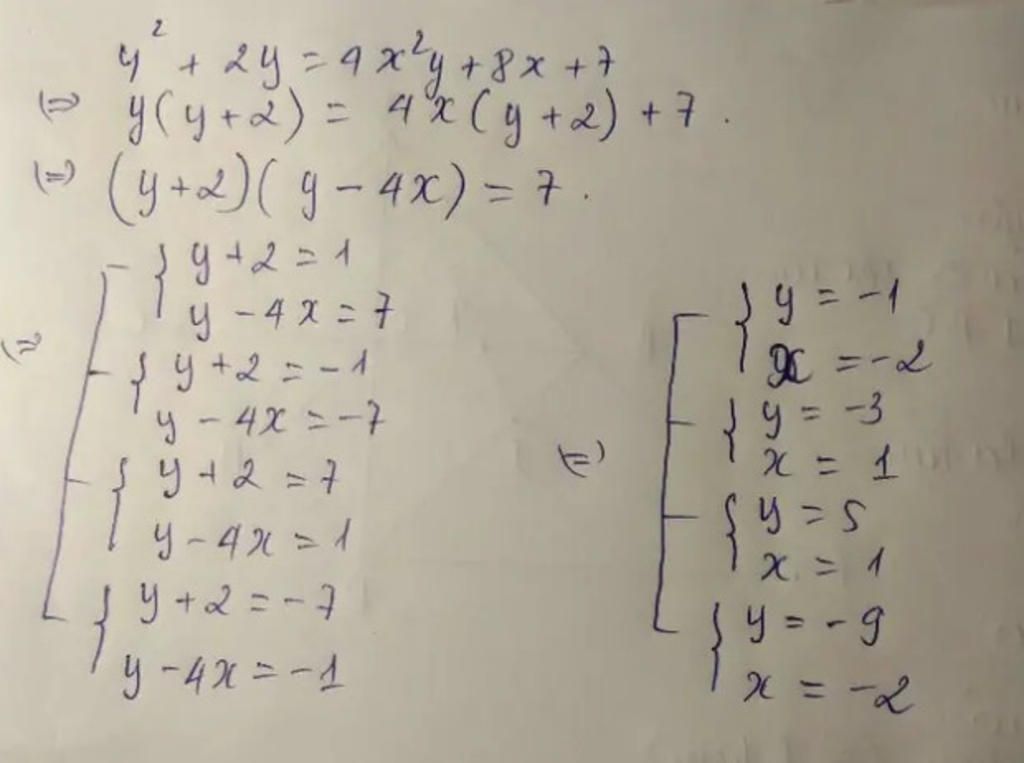 y² + 2y = 4x²y + 8x + 7
(=) y(y+2) = 4x(y+2) + 7.
(=) (y+2)(y - 4x) = 7.
(=) [ { y + 2 = 1
y - 4x = 7
{ y + 2 = -1
y - 4x = -7
{ y + 2 = 7
y - 4x = 1
{ y + 2 = -7
y - 4x = -1
(=) [ { y = -1
x = -2
{ y = -3
x = 1
{ y = 5
x = 1
{ y = -9
x = -2